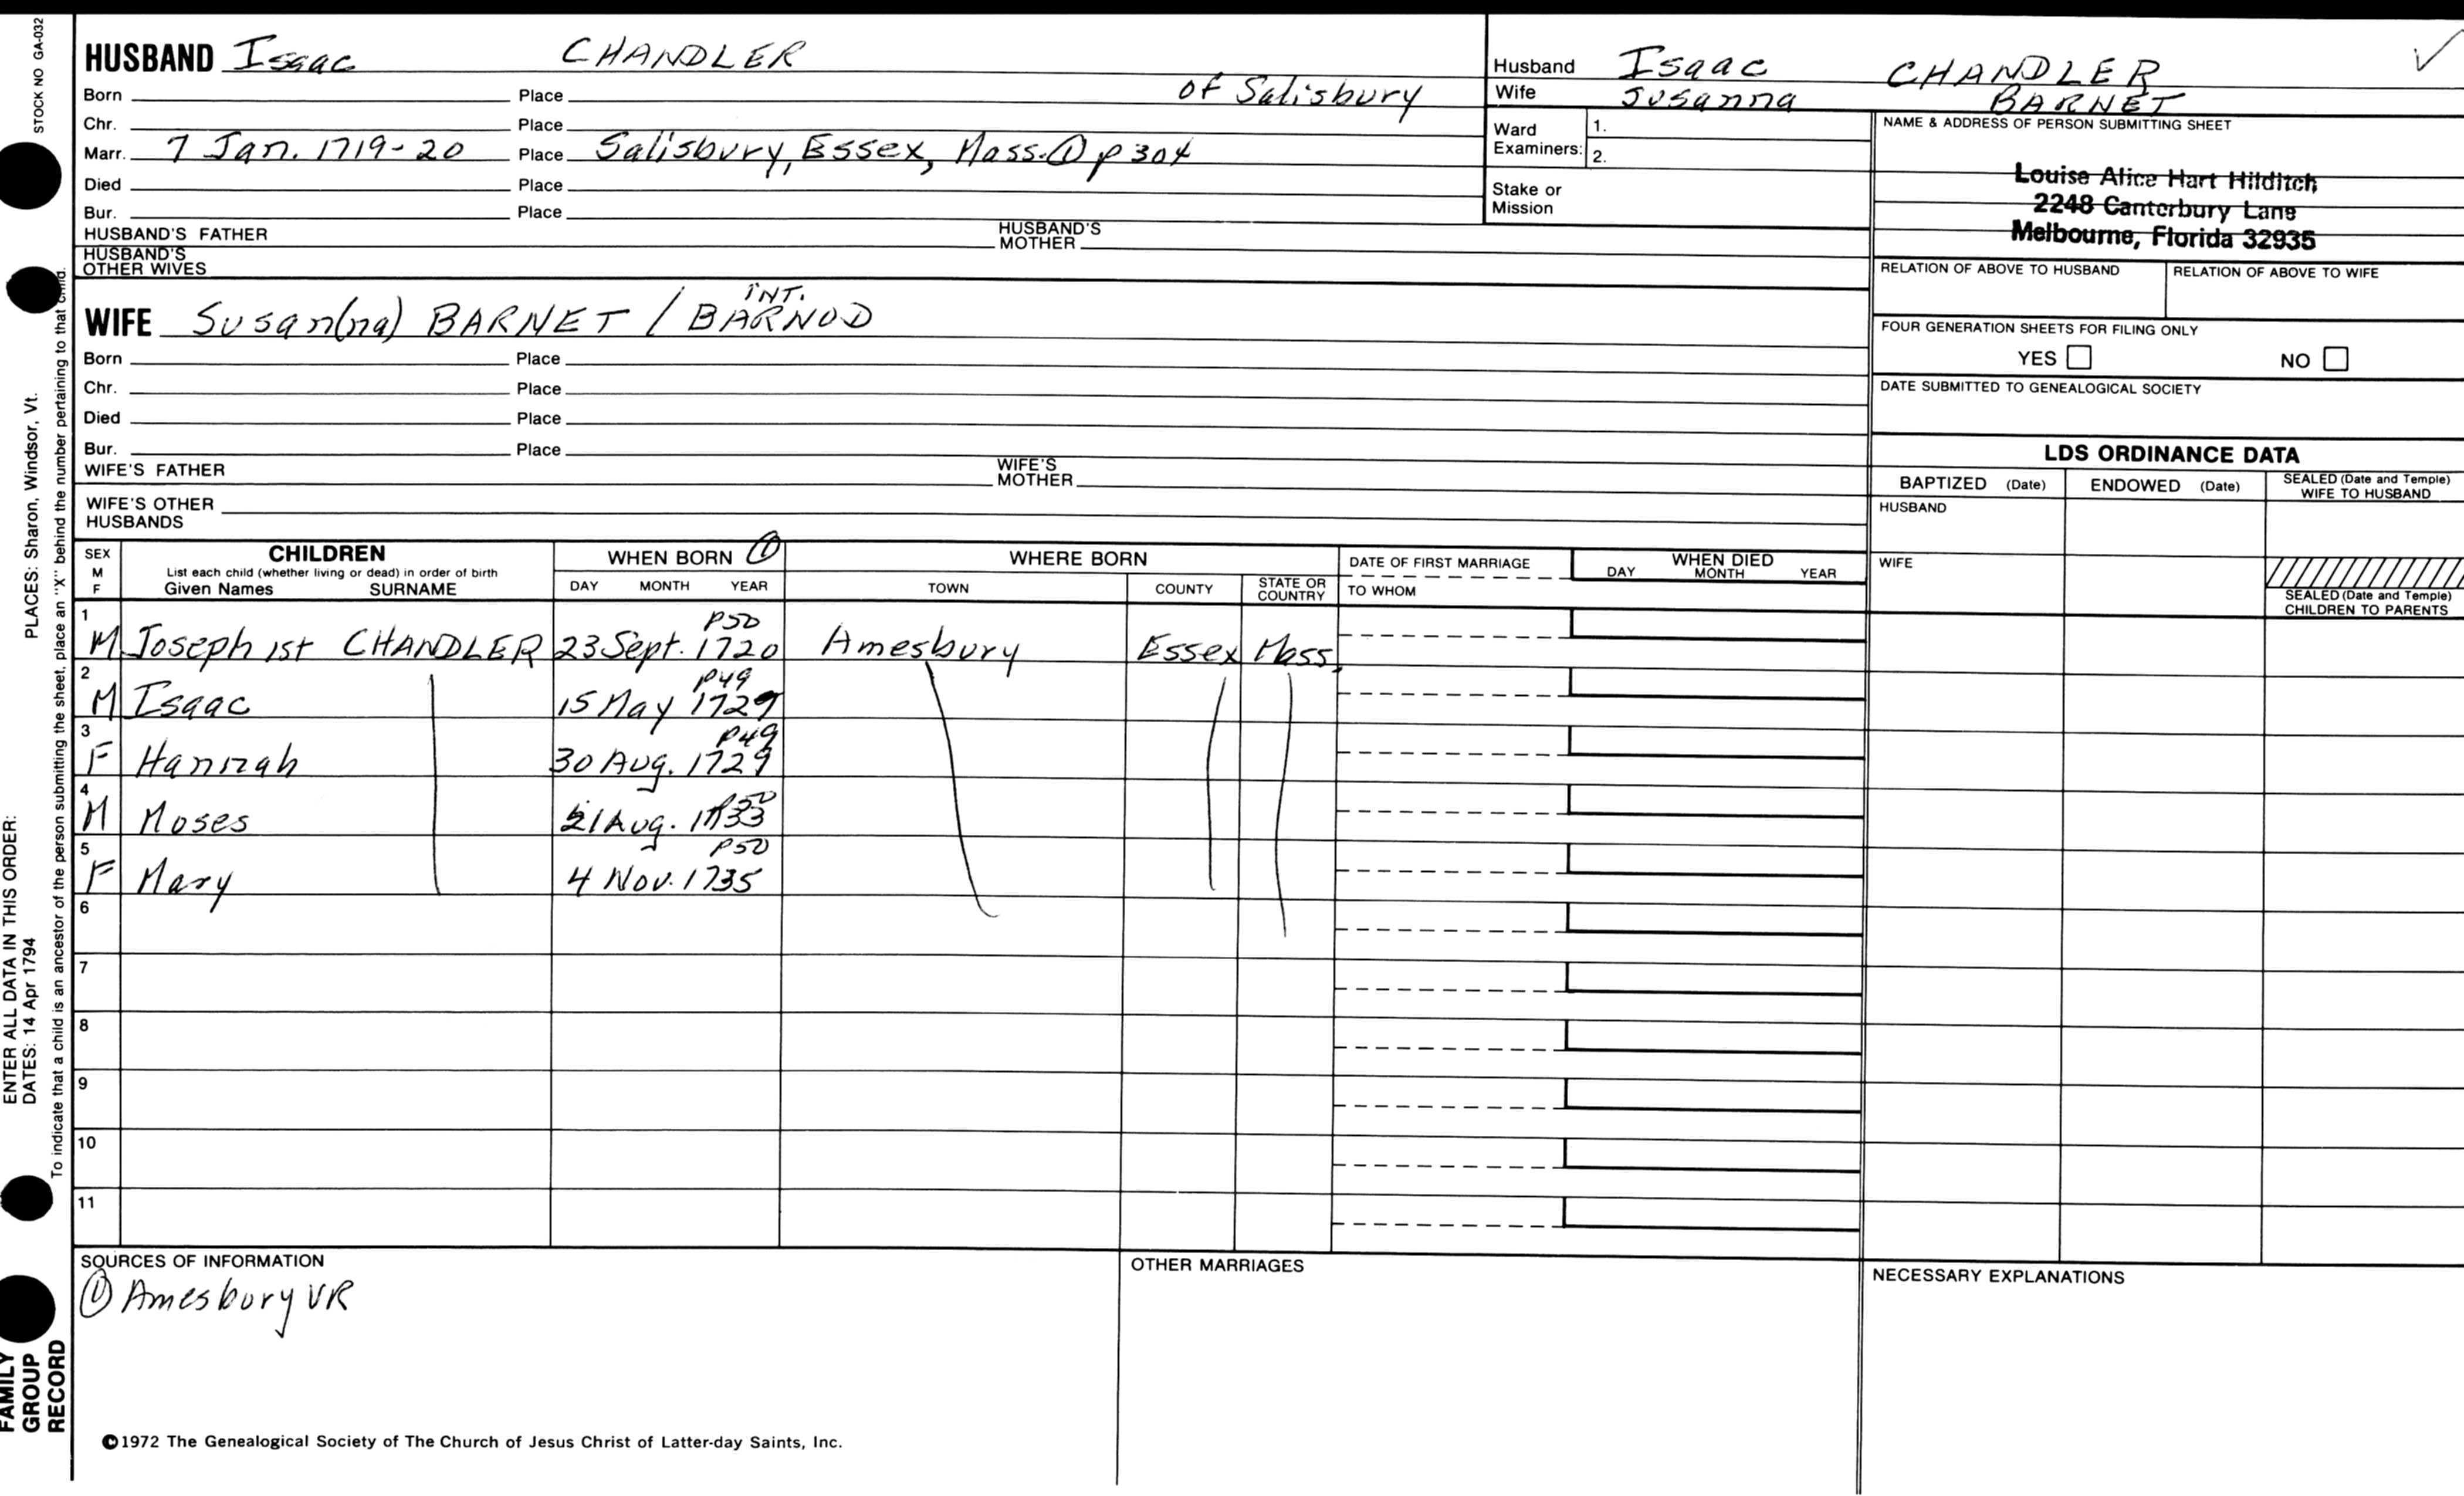 STOCK NO GA-032
PLACES: Sharon, Windsor, Vt.
ENTER ALL DATA IN THIS ORDER:
DATES: 14 Apr 1794
To indicate that a child is an ancestor of the person submitting the sheet, place an "X" behind the number pertaining to that child.
FAMILY
GROUP
RECORD
HUSBAND Isaac CHANDLER
Born Place of Salisbury
Chr. Place
Marr. 7 Jan. 1719-20 Place Salisbury, Essex, Mass. ① p 304
Died Place
Bur. Place
HUSBAND'S FATHER HUSBAND'S MOTHER
HUSBAND'S OTHER WIVES
INT.
WIFE Susan(na) BARNET / BARNOD
Born Place
Chr. Place
Died Place
Bur. Place
WIFE'S FATHER WIFE'S MOTHER
WIFE'S OTHER HUSBANDS
Husband Isaac CHANDLER
Wife Susanna BARNET
Ward Examiners: 1.
2.
Stake or Mission
NAME & ADDRESS OF PERSON SUBMITTING SHEET
Louise Alice Hart Hilditch
2248 Canterbury Lane
Melbourne, Florida 32935
RELATION OF ABOVE TO HUSBAND RELATION OF ABOVE TO WIFE
FOUR GENERATION SHEETS FOR FILING ONLY
YES NO
DATE SUBMITTED TO GENEALOGICAL SOCIETY
LDS ORDINANCE DATA
BAPTIZED (Date) ENDOWED (Date) SEALED (Date and Temple) WIFE TO HUSBAND
HUSBAND
WIFE
SEALED (Date and Temple) CHILDREN TO PARENTS
SEX M F CHILDREN WHEN BORN ① WHERE BORN DATE OF FIRST MARRIAGE WHEN DIED
List each child (whether living or dead) in order of birth
Given Names SURNAME DAY MONTH YEAR TOWN COUNTY STATE OR COUNTRY TO WHOM DAY MONTH YEAR
P50
1 M Joseph 1st CHANDLER 23 Sept. 1720 Amesbury Essex Mass.
P49
2 M Isaac 15 May 1727
P49
3 F Hannah 30 Aug. 1729
P50
4 M Moses 21 Aug. 1733
P50
5 F Mary 4 Nov. 1735
6
7
8
9
10
11
SOURCES OF INFORMATION
① Amesbury VR
OTHER MARRIAGES
NECESSARY EXPLANATIONS
©1972 The Genealogical Society of The Church of Jesus Christ of Latter-day Saints, Inc.